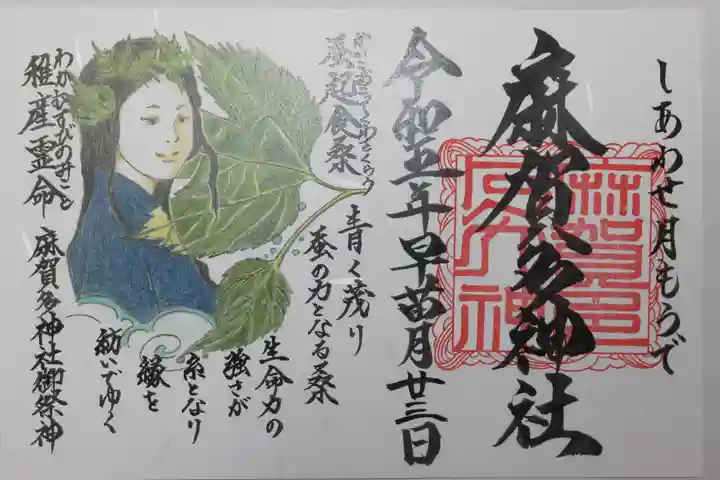 しあわせ月もうで
麻賀多神社
令和五年早苗月廿三日
蚕起食桑
青く茂り
蚕の力となる桑
生命力の
強さが
糸となり
縁を
紡いでゆく
わかむすびのみこと
稚産霊命
麻賀多神社御祭神